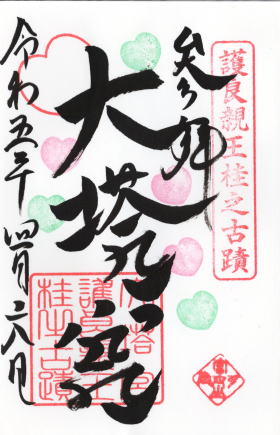 護良親王桂之古蹟
参拝
大塔宮
令和五年四月二八日
大塔宮
護良親王
桂之古蹟